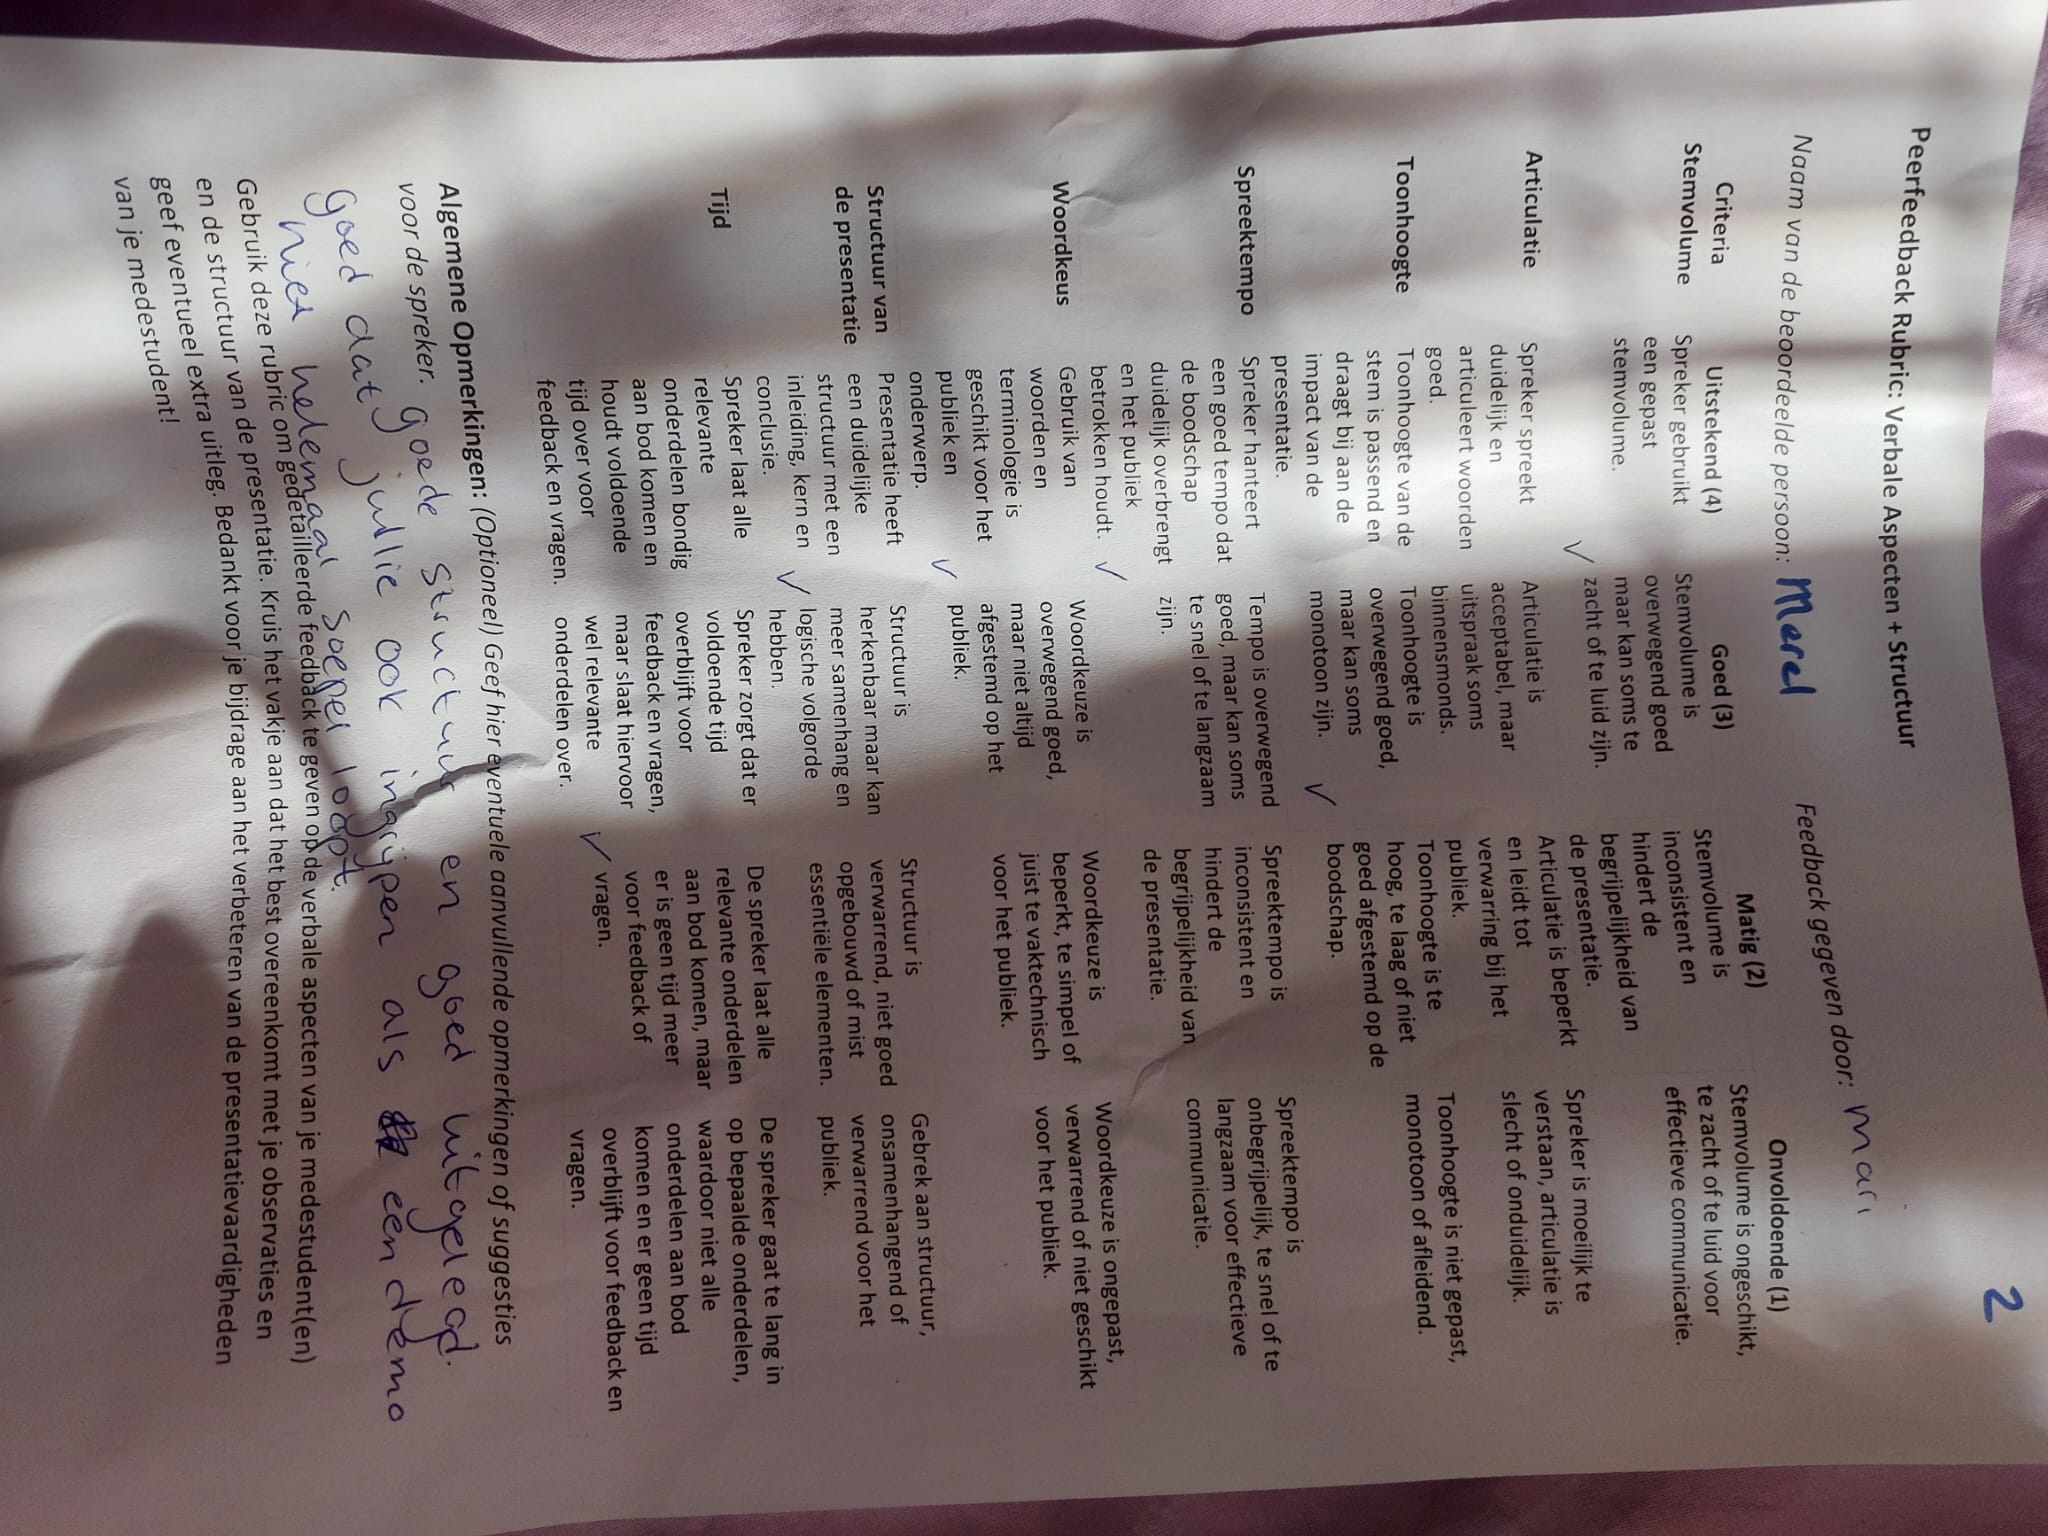 2
Peerfeedback Rubric: Verbale Aspecten + Structuur
Naam van de beoordeelde persoon: Merel Feedback gegeven door: Mari
Criteria Uitstekend (4) Goed (3) Matig (2) Onvoldoende (1)
Stemvolume
Spreker gebruikt
een gepast
stemvolume.
Stemvolume is
overwegend goed
maar kan soms te
✓ zacht of te luid zijn.
Stemvolume is
inconsistent en
hindert de
begrijpelijkheid van
de presentatie.
Stemvolume is ongeschikt,
te zacht of te luid voor
effectieve communicatie.
Articulatie
Spreker spreekt
duidelijk en
articuleert woorden
goed.
Articulatie is
acceptabel, maar
uitspraak soms
binnensmonds.
Articulatie is beperkt
en leidt tot
verwarring bij het
publiek.
Spreker is moeilijk te
verstaan, articulatie is
slecht of onduidelijk.
Toonhoogte
Toonhoogte van de
stem is passend en
draagt bij aan de
impact van de
presentatie.
Toonhoogte is
overwegend goed,
maar kan soms
monotoon zijn. ✓
Toonhoogte is te
hoog, te laag of niet
goed afgestemd op de
boodschap.
Toonhoogte is niet gepast,
monotoon of afleidend.
Spreektempo
Spreker hanteert
een goed tempo dat
de boodschap
duidelijk overbrengt
en het publiek
betrokken houdt. ✓
Tempo is overwegend
goed, maar kan soms
te snel of te langzaam
zijn.
Spreektempo is
inconsistent en
hindert de
begrijpelijkheid van
de presentatie.
Spreektempo is
onbegrijpelijk, te snel of te
langzaam voor effectieve
communicatie.
Woordkeus
Gebruik van
woorden en
terminologie is
geschikt voor het
publiek en
onderwerp. ✓
Woordkeuze is
overwegend goed,
maar niet altijd
afgestemd op het
publiek.
Woordkeuze is
beperkt, te simpel of
juist te vaktechnisch
voor het publiek.
Woordkeuze is ongepast,
verwarrend of niet geschikt
voor het publiek.
Structuur van
de presentatie
Presentatie heeft
een duidelijke
structuur met een
inleiding, kern en
conclusie. ✓
Structuur is
herkenbaar maar kan
meer samenhang en
logische volgorde
hebben.
Structuur is
verwarrend, niet goed
opgebouwd of mist
essentiële elementen.
Gebrek aan structuur,
onsamenhangend of
verwarrend voor het
publiek.
Tijd
Spreker laat alle
relevante
onderdelen bondig
aan bod komen en
houdt voldoende
tijd over voor
feedback en vragen.
Spreker zorgt dat er
voldoende tijd
overblijft voor
feedback en vragen,
maar slaat hiervoor
wel relevante
onderdelen over.
De spreker laat alle
relevante onderdelen
aan bod komen, maar
er is geen tijd meer
voor feedback of
✓ vragen.
De spreker gaat te lang in
op bepaalde onderdelen,
waardoor niet alle
onderdelen aan bod
komen en er geen tijd
overblijft voor feedback en
vragen.
Algemene Opmerkingen: (Optioneel) Geef hier eventuele aanvullende opmerkingen of suggesties
voor de spreker. goede structuur en goed uitgelegd.
goed dat jullie ook ingrijpen als een demo
niet helemaal soepel loopt.
Gebruik deze rubric om gedetailleerde feedback te geven op de verbale aspecten van je medestudent(en)
en de structuur van de presentatie. Kruis het vakje aan dat het best overeenkomt met je observaties en
geef eventueel extra uitleg. Bedankt voor je bijdrage aan het verbeteren van de presentatievaardigheden
van je medestudent!